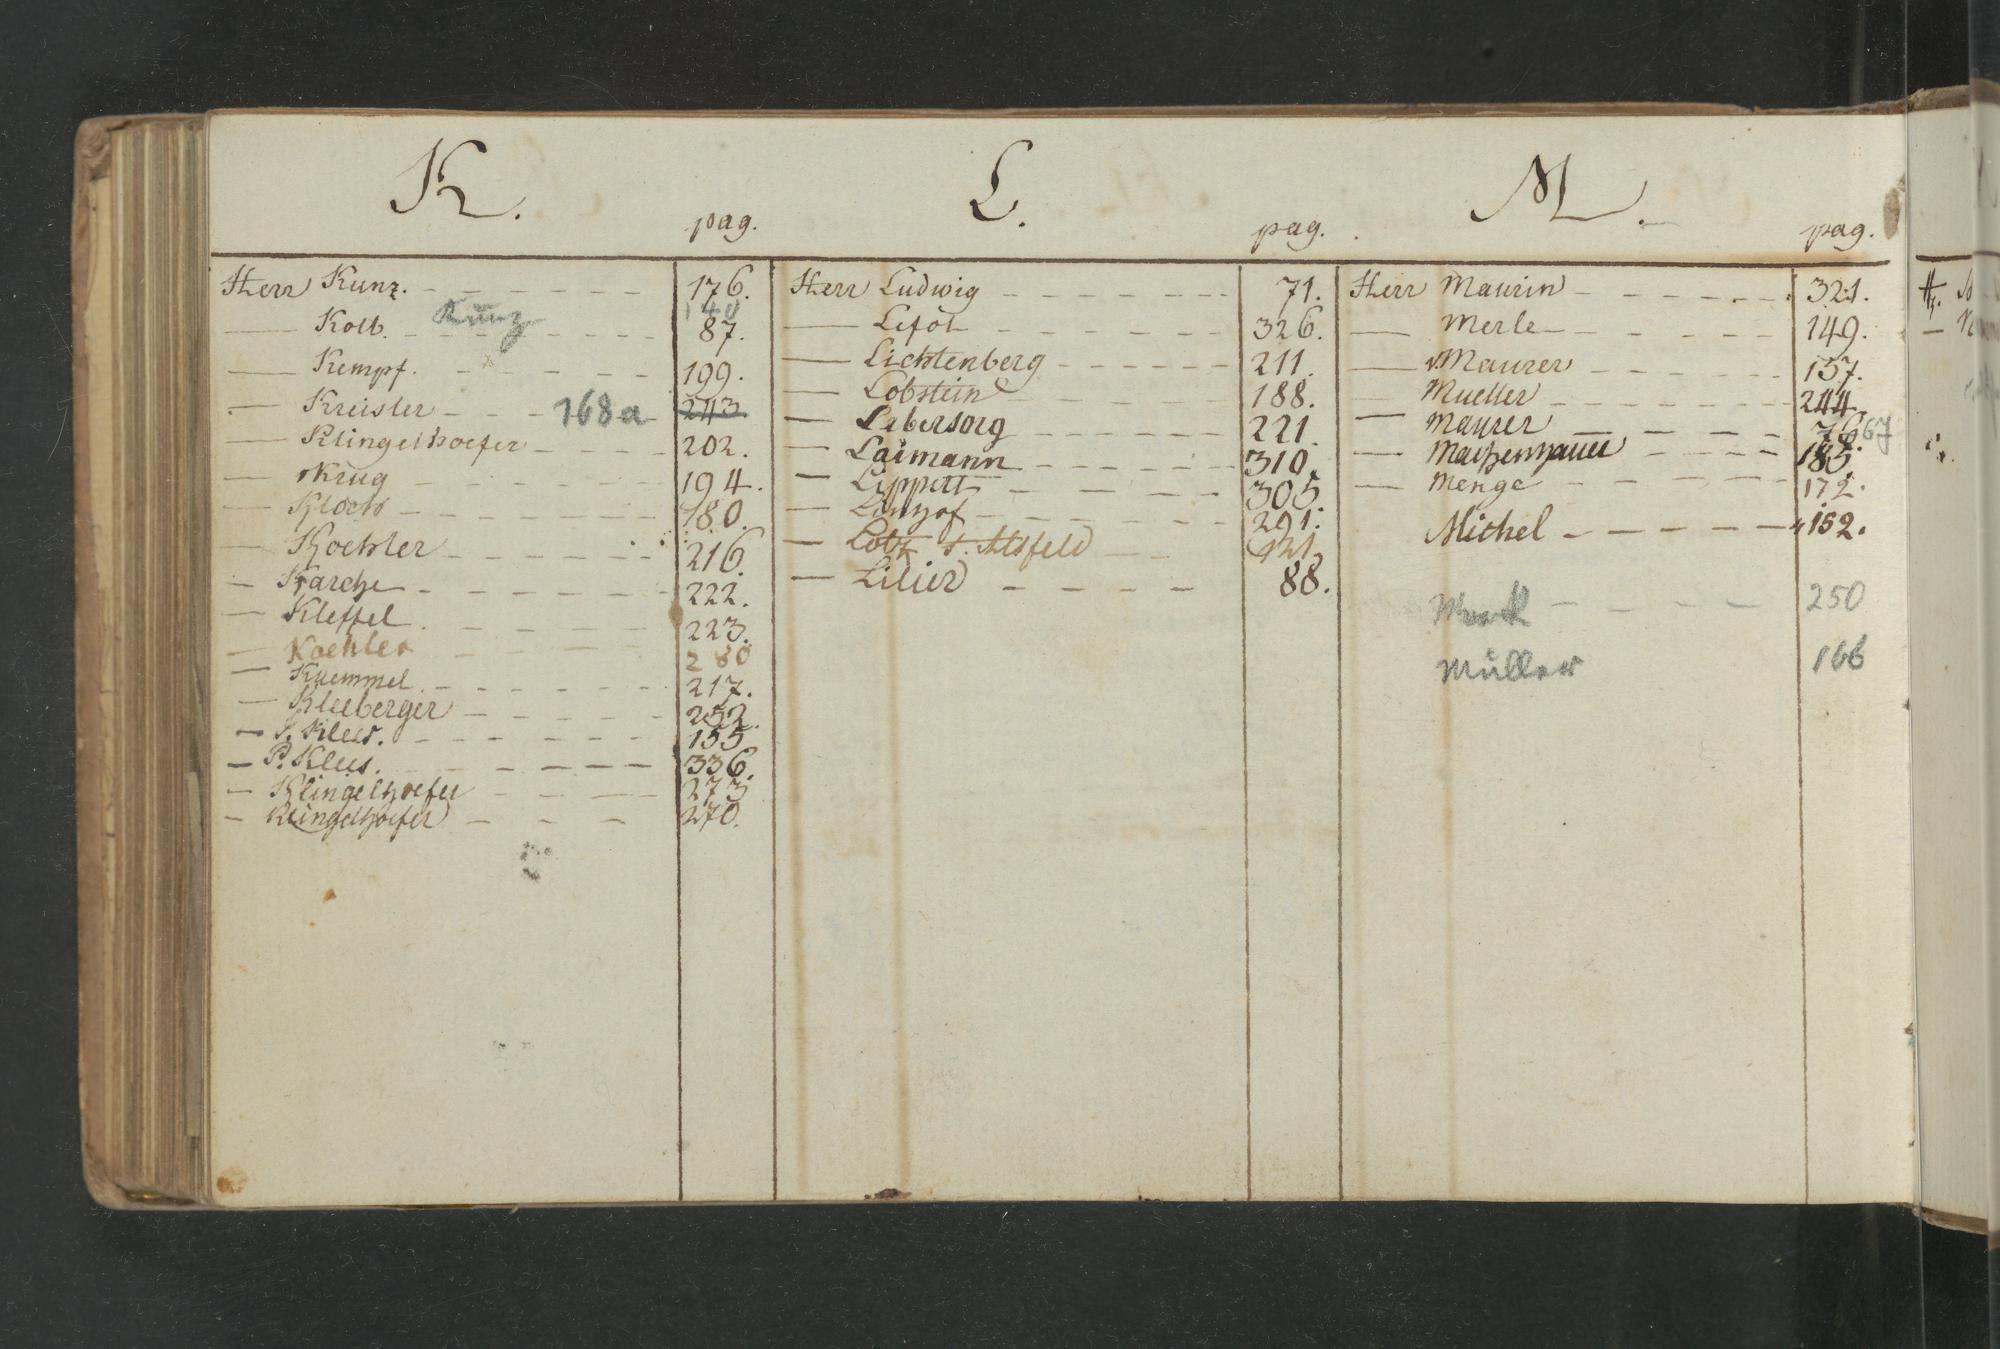 K. pag.
Herr Kunz. 176.
Kunz 140
— Kolb. 87.
— Kempf. 199.
— Kreisler 168a 243
— Klingelhoefer 202.
— Krug 194.
— Klock 180.
— Koehler 216.
— Karche 222.
— Kleffel 223.
— Koehler 280
— Kuemmel 217.
— Kleeberger 252.
— J. Klees. 155
— P. Klees. 336.
— Klingelhoefer 273
— Klingelhoefer 270.
L. pag.
Herr Ludwig 71.
— Lefol 326.
— Lichtenberg 211.
— Lobstein 188.
— Labersorg 221.
— Laimann 310.
— Lippert 305.
— Linhof 291.
— Lotz v. Alsfeld 121.
— Lilier 88.
M. pag.
Herr Maurin 321.
— Merle 149.
— Maurer 157.
— Mueller 244.
— Maurer 76. 67
— Matzenhauer 185.
— Menge 172.
Michel 152.
250
Müller 166